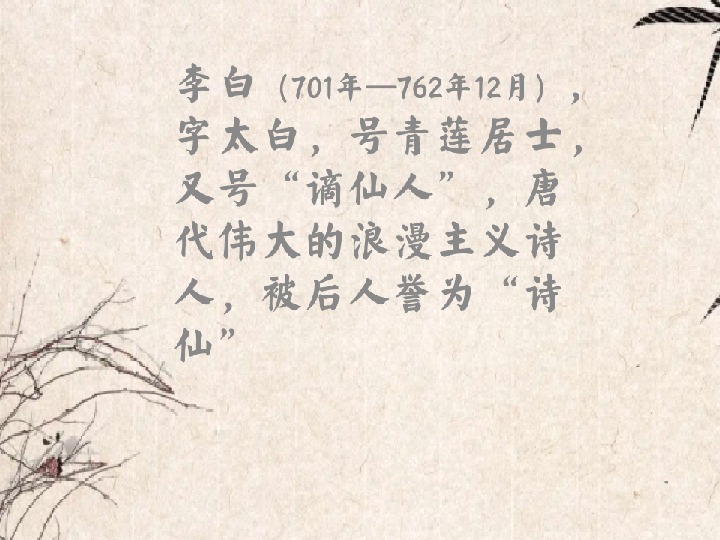 李白（701年—762年12月），
字太白，号青莲居士，
又号“谪仙人”，唐
代伟大的浪漫主义诗
人，被后人誉为“诗
仙”